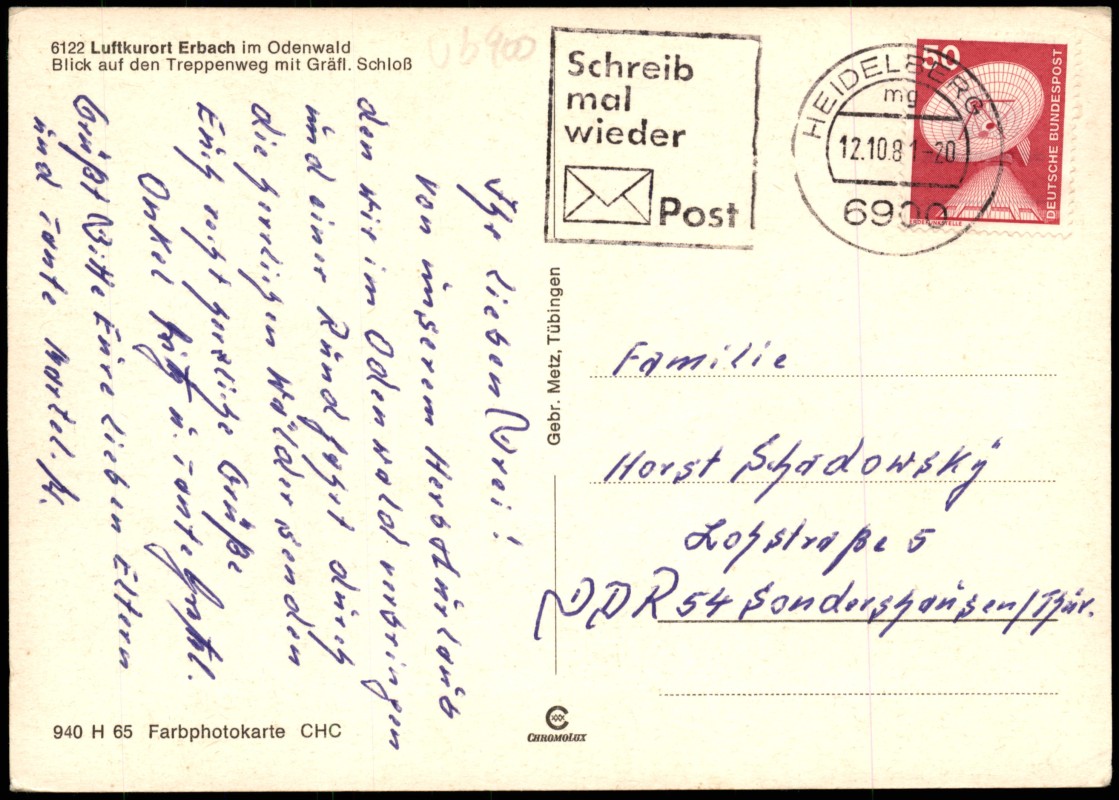 6122 Luftkurort Erbach im Odenwald
Blick auf den Treppenweg mit Gräfl. Schloß
Ub 900
Schreib
mal
wieder
Post
HEIDELBERG
mg
12.10.81-20
6900
50
DEUTSCHE BUNDESPOST
ERDEFUNKSTELLE
Ihr lieben Drei!
Von unserem Herbsturlaub
den wir im Odenwald verbringen
und einer Rundfahrt durch
die herrlichen Wälder senden
Euch recht herzliche Grüße
Onkel Fritz u. Tante
Grüßt Bitte Eure lieben Eltern
und Tante Martel.
Gebr. Metz, Tübingen
Familie
Horst Schadowsky
Lohstraße 5
DDR 54 Sondershausen/Thür.
940 H 65 Farbphotokarte CHC
CHROMOLUX